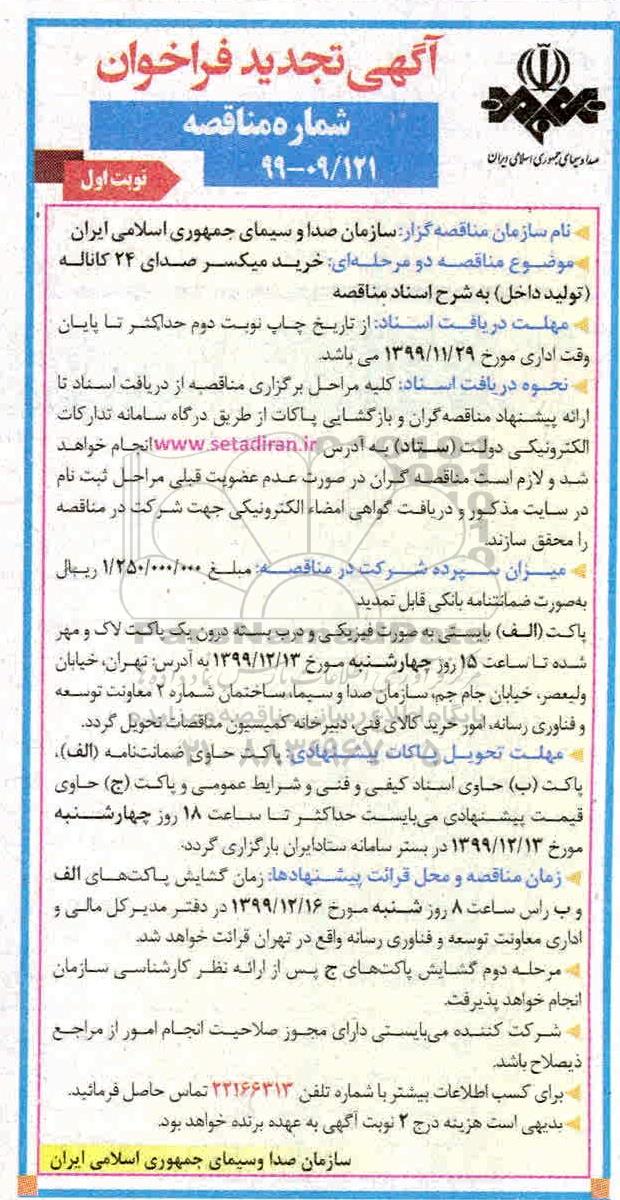 آگهی تجدید فراخوان
شماره مناقصه
۹۹-۰۹/۱۲۱
نوبت اول
صدا و سیمای جمهوری اسلامی ایران
نام سازمان مناقصه‌گزار: سازمان صدا و سیمای جمهوری اسلامی ایران
موضوع مناقصه دو مرحله‌ای: خرید میکسر صدای ۲۴ کاناله
(تولید داخل) به شرح اسناد مناقصه
مهلت دریافت اسناد: از تاریخ چاپ نوبت دوم حداکثر تا پایان
وقت اداری مورخ ۱۳۹۹/۱۱/۲۹ می باشد.
نحوه دریافت اسناد: کلیه مراحل برگزاری مناقصه از دریافت اسناد تا
ارائه پیشنهاد مناقصه‌گران و بازگشایی پاکات از طریق درگاه سامانه تدارکات
الکترونیکی دولت (ستاد) به آدرس www.setadiran.ir انجام خواهد
شد و لازم است مناقصه گران در صورت عدم عضویت قبلی مراحل ثبت نام
در سایت مذکور و دریافت گواهی امضاء الکترونیکی جهت شرکت در مناقصه
را محقق سازند.
میزان سپرده شرکت در مناقصه: مبلغ ۱/۲۵۰/۰۰۰/۰۰۰ ریال
به‌صورت ضمانتنامه بانکی قابل تمدید
پاکت (الف) بایستی به صورت فیزیکی و درب بسته درون یک پاکت لاک و مهر
شده تا ساعت ۱۵ روز چهارشنبه مورخ ۱۳۹۹/۱۲/۱۳ به آدرس: تهران، خیابان
ولیعصر، خیابان جام جم، سازمان صدا و سیما، ساختمان شماره ۲ معاونت توسعه
و فناوری رسانه، امور خرید کالای فنی، دبیرخانه کمیسیون مناقصات تحویل گردد.
مهلت تحویل پاکات پیشنهادی: پاکت حاوی ضمانت‌نامه (الف)،
پاکت (ب) حاوی اسناد کیفی و فنی و شرایط عمومی و پاکت (ج) حاوی
قیمت پیشنهادی می‌بایست حداکثر تا ساعت ۱۸ روز چهارشنبه
مورخ ۱۳۹۹/۱۲/۱۳ در بستر سامانه ستادایران بارگزاری گردد.
زمان مناقصه و محل قرائت پیشنهادها: زمان گشایش پاکت‌های الف
و ب راس ساعت ۸ روز شنبه مورخ ۱۳۹۹/۱۲/۱۶ در دفتر مدیرکل مالی و
اداری معاونت توسعه و فناوری رسانه واقع در تهران قرائت خواهد شد.
مرحله دوم گشایش پاکت‌های ج پس از ارائه نظر کارشناسی سازمان
انجام خواهد پذیرفت.
شرکت کننده می‌بایستی دارای مجوز صلاحیت انجام امور از مراجع
ذیصلاح باشد.
برای کسب اطلاعات بیشتر با شماره تلفن ۲۲۱۶۶۳۱۳ تماس حاصل فرمائید.
بدیهی است هزینه درج ۲ نوبت آگهی به عهده برنده خواهد بود.
سازمان صدا وسیمای جمهوری اسلامی ایران